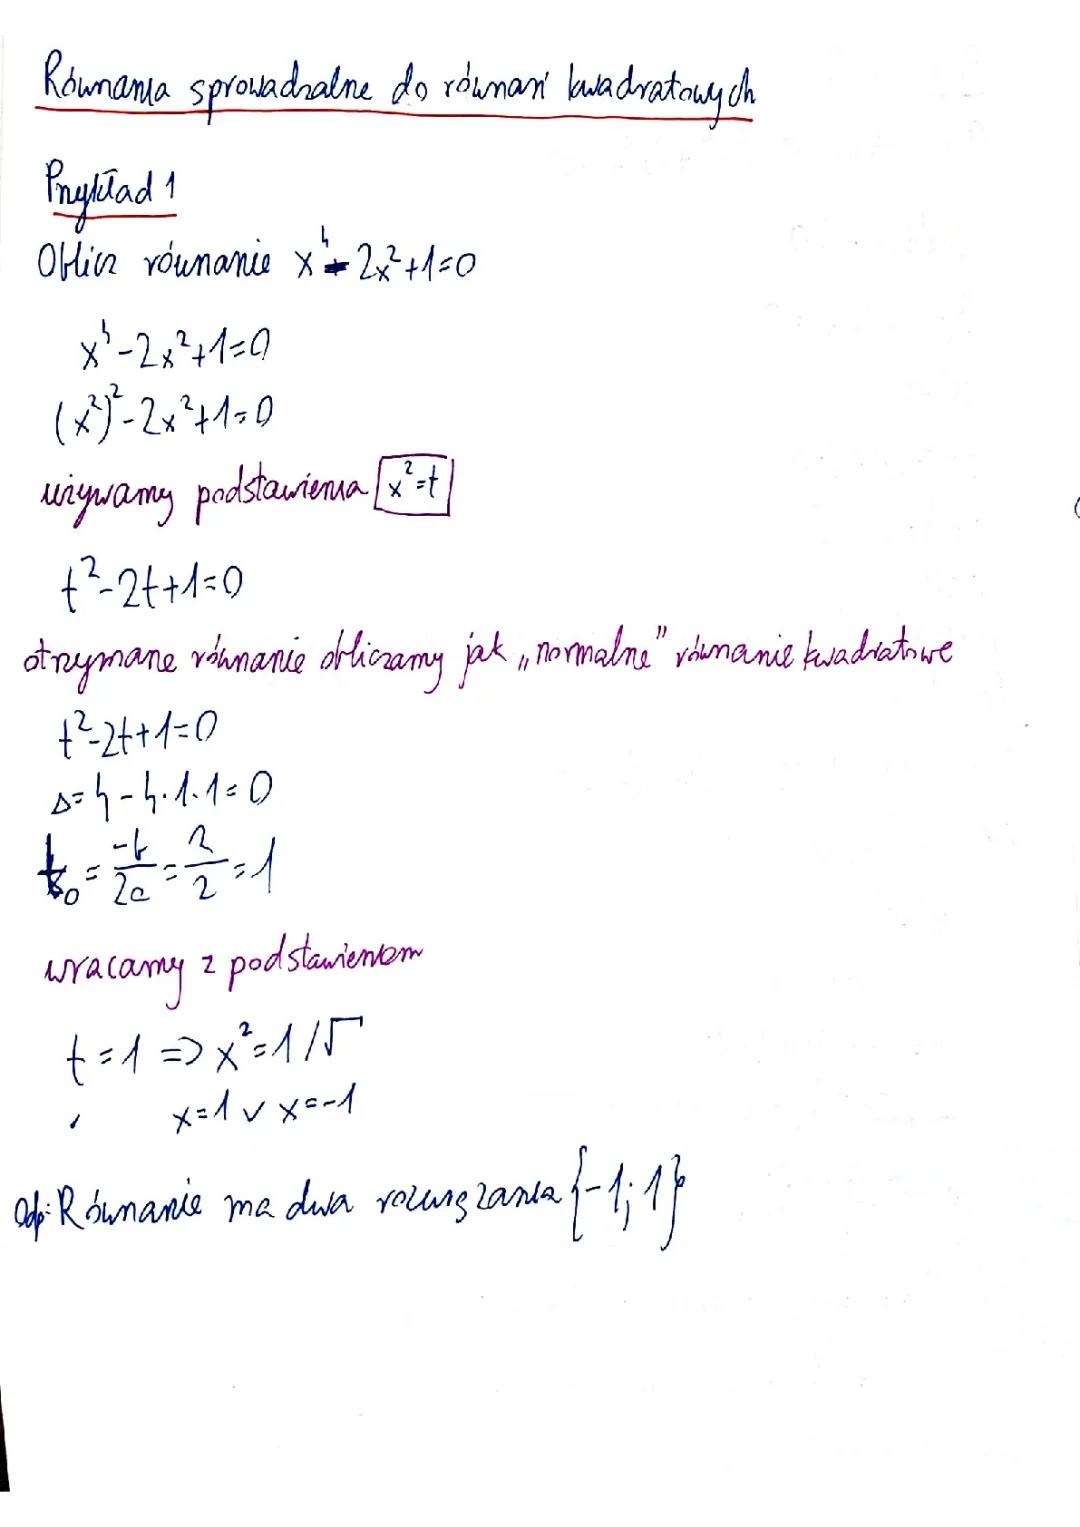 Równania sprowadzalne do równań kwadratowych
Przykład 1
Oblicz równanie x⁴-2x²+1=0
x⁴-2x²+1=0
(x²)²-2x²+1=0
używamy podstawienia x²=t
t²-2t+1=0
otrzymane równanie obliczamy jak „normalne" równanie kwadratowe
t²-2t+1=0
Δ=4-4·1·1=0
t₀=-b/2a=2/2=1
wracamy z podstawieniem
t=1=>x²=1/√
x=1 ∨ x=-1
Odp: Równanie ma dwa rozwiązania {-1; 1}